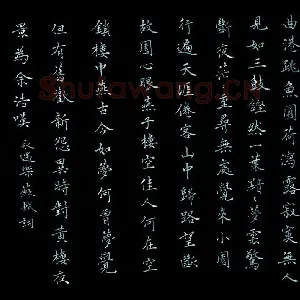 曲港跳魚圓荷瀉露寂寞無人
見紞如三鼓鏗然一葉黯黯夢雲驚
斷夜茫茫重尋無處覺來小園
行遍天涯倦客山中歸路望斷
故園心眼燕子樓空佳人何在空
鎖樓中燕古今如夢何曾夢覺
但有舊歡新怨異時對黃樓夜
景為余浩嘆 永遇樂 蘇軾詞
Shufawang.CN